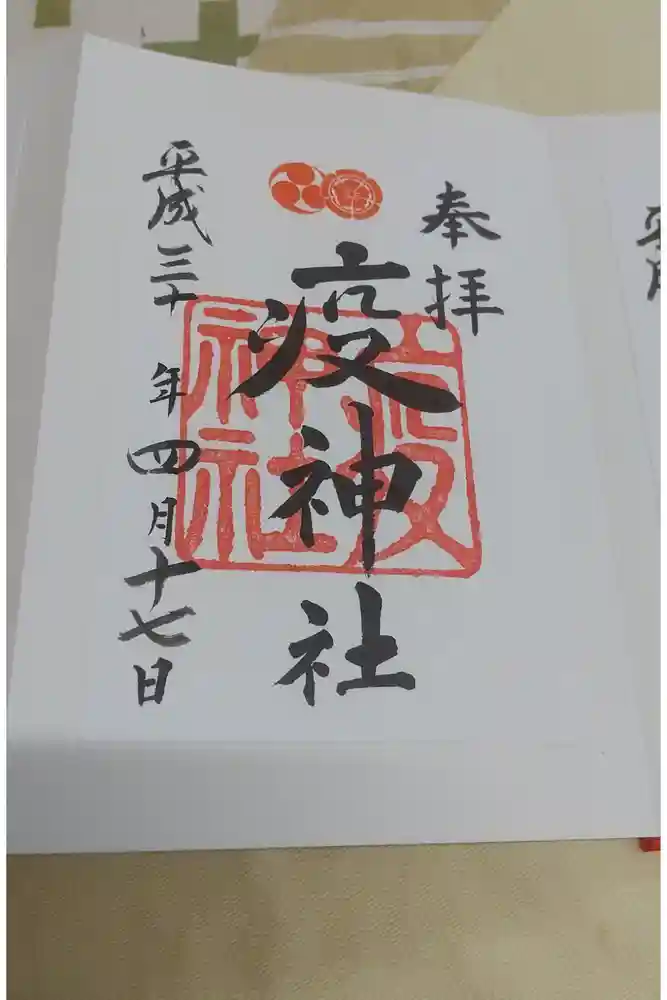 奉拝
疫神社
疫神社
平成三十年四月十七日
平成